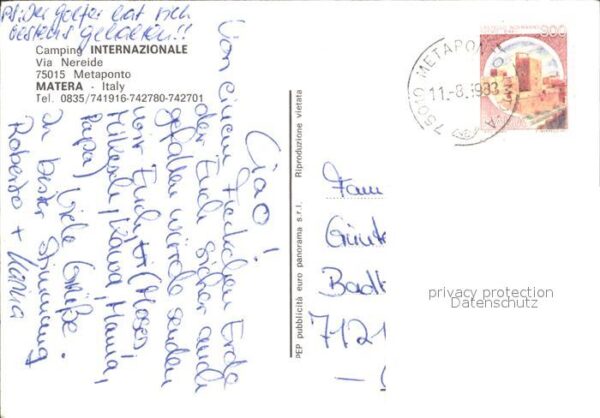 PS: Der Golfer hat sich
bestens gehalten!!
Camping INTERNAZIONALE
Via Nereide
75015 Metaponto
MATERA - Italy
Tel. 0835/741916-742780-742701
Ciao!
Von einem Fleckchen Erde
der Euch sicher auch
gefallen würde senden
wir Euch, (Moses,
Mama,
Papa) Viele Grüße.
In bester Stimmung
Roberto +
PEP pubblicità euro panorama s.r.l. Riproduzione vietata
900
75010 METAPONTO
11.-8.1983
Fam
Günte
Badt
7121
privacy protection
Datenschutz